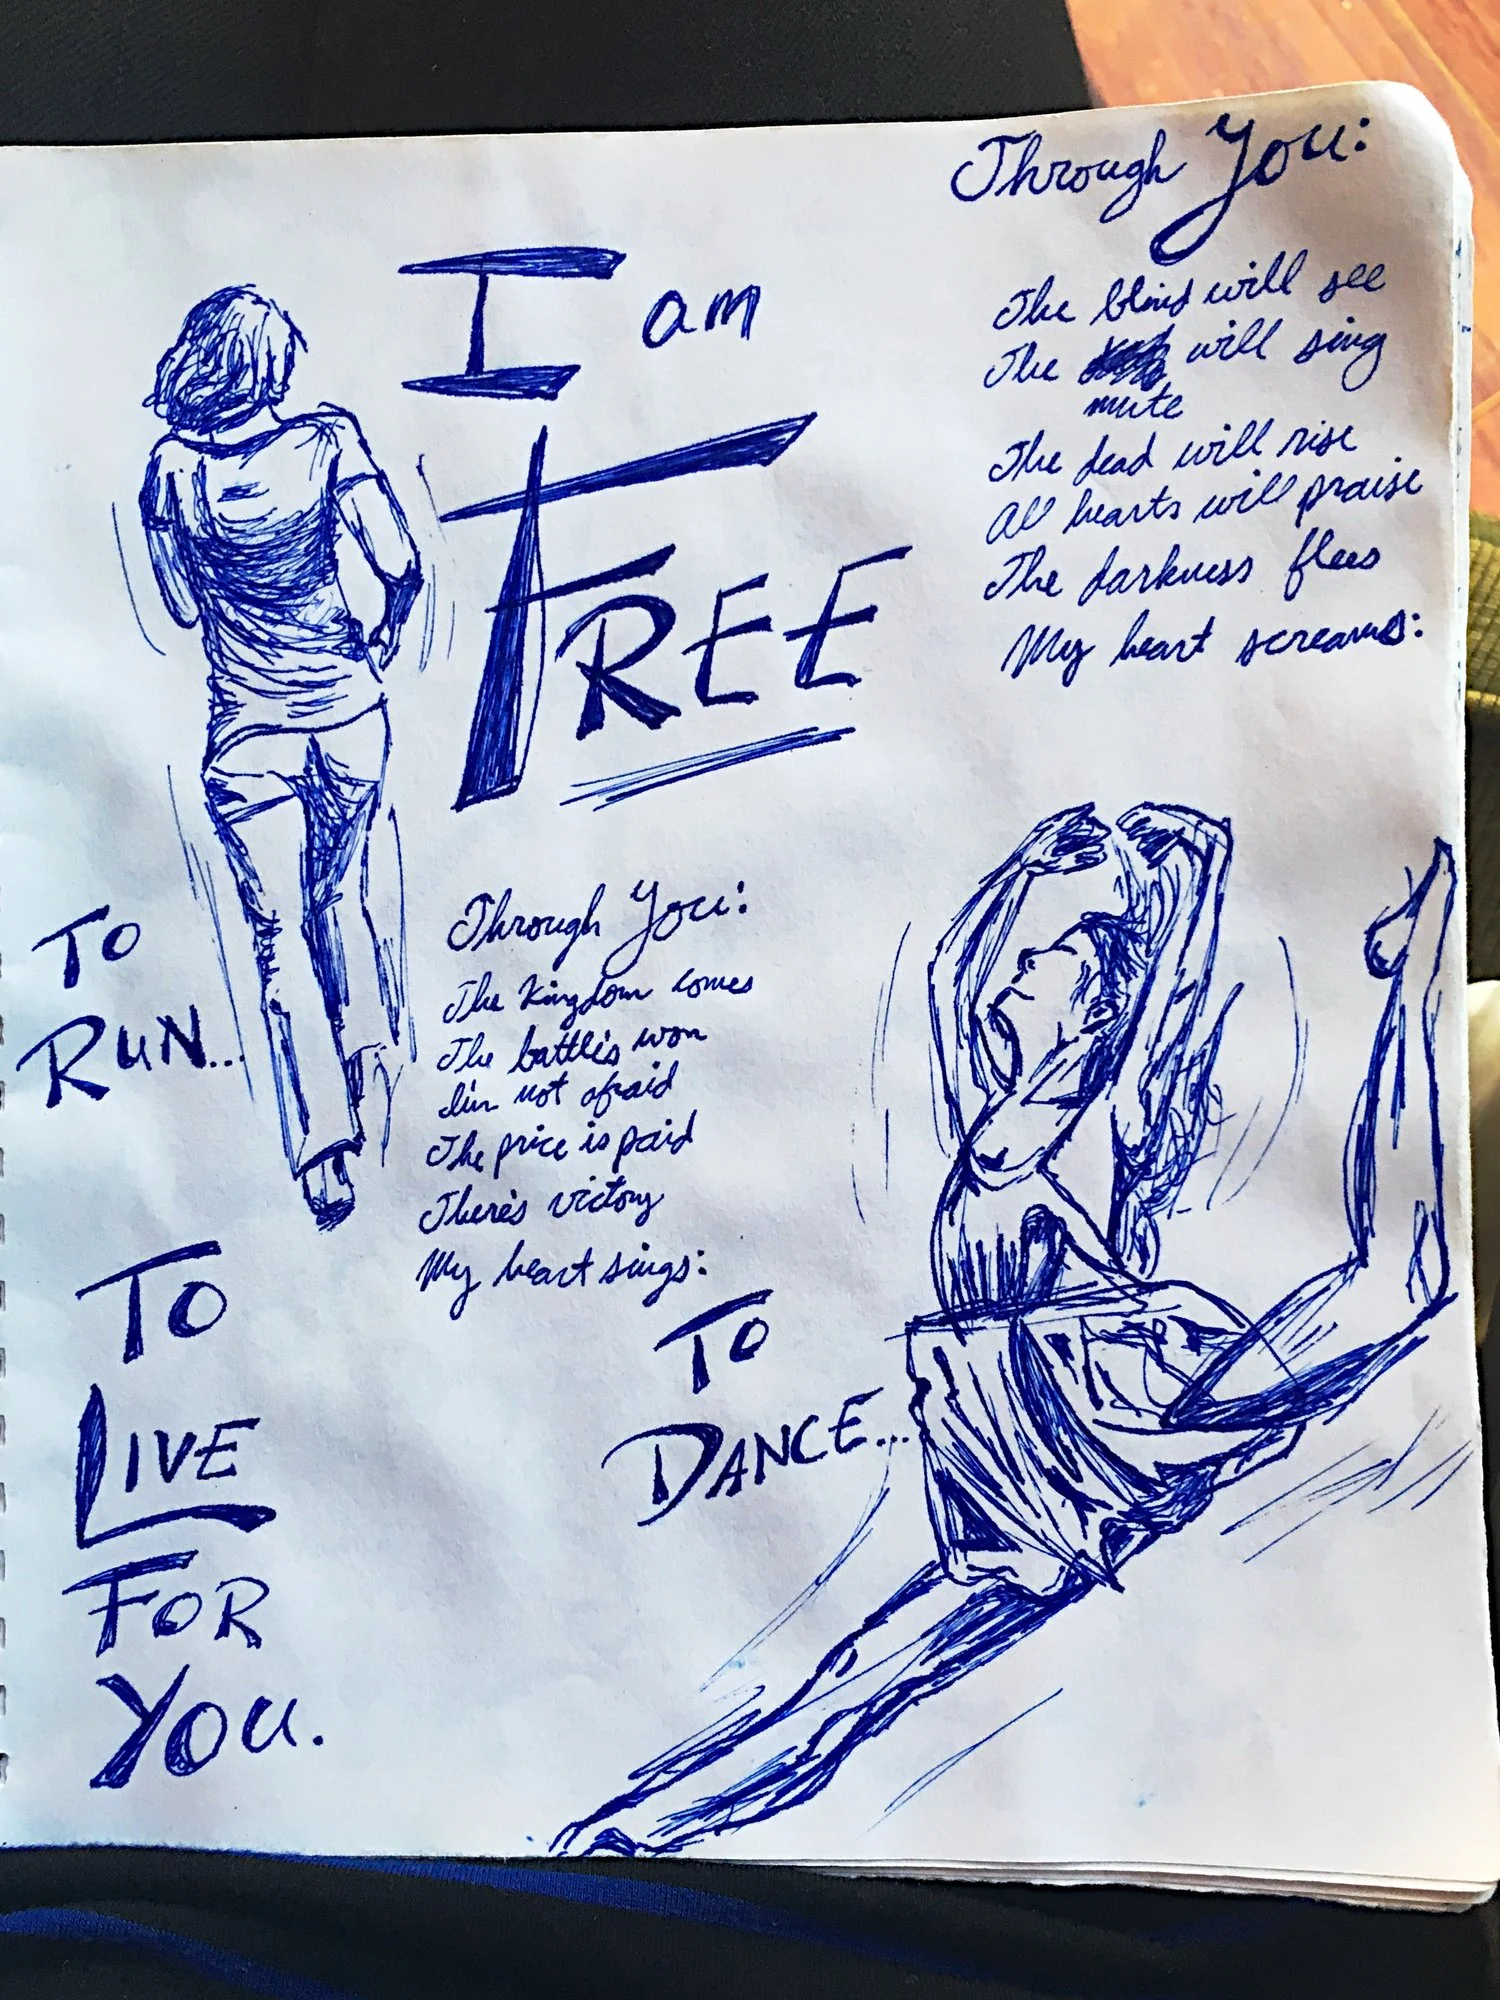 Through You:
The blind will see
The will sing
mute
The dead will rise
All hearts will praise
The darkness flees
My heart screams:
I am
FREE
Through You:
The Kingdom comes
The battle's won
I'm not afraid
The price is paid
There's victory
My heart sings:
TO
RUN...
TO
DANCE...
TO
LIVE
FOR
YOU.